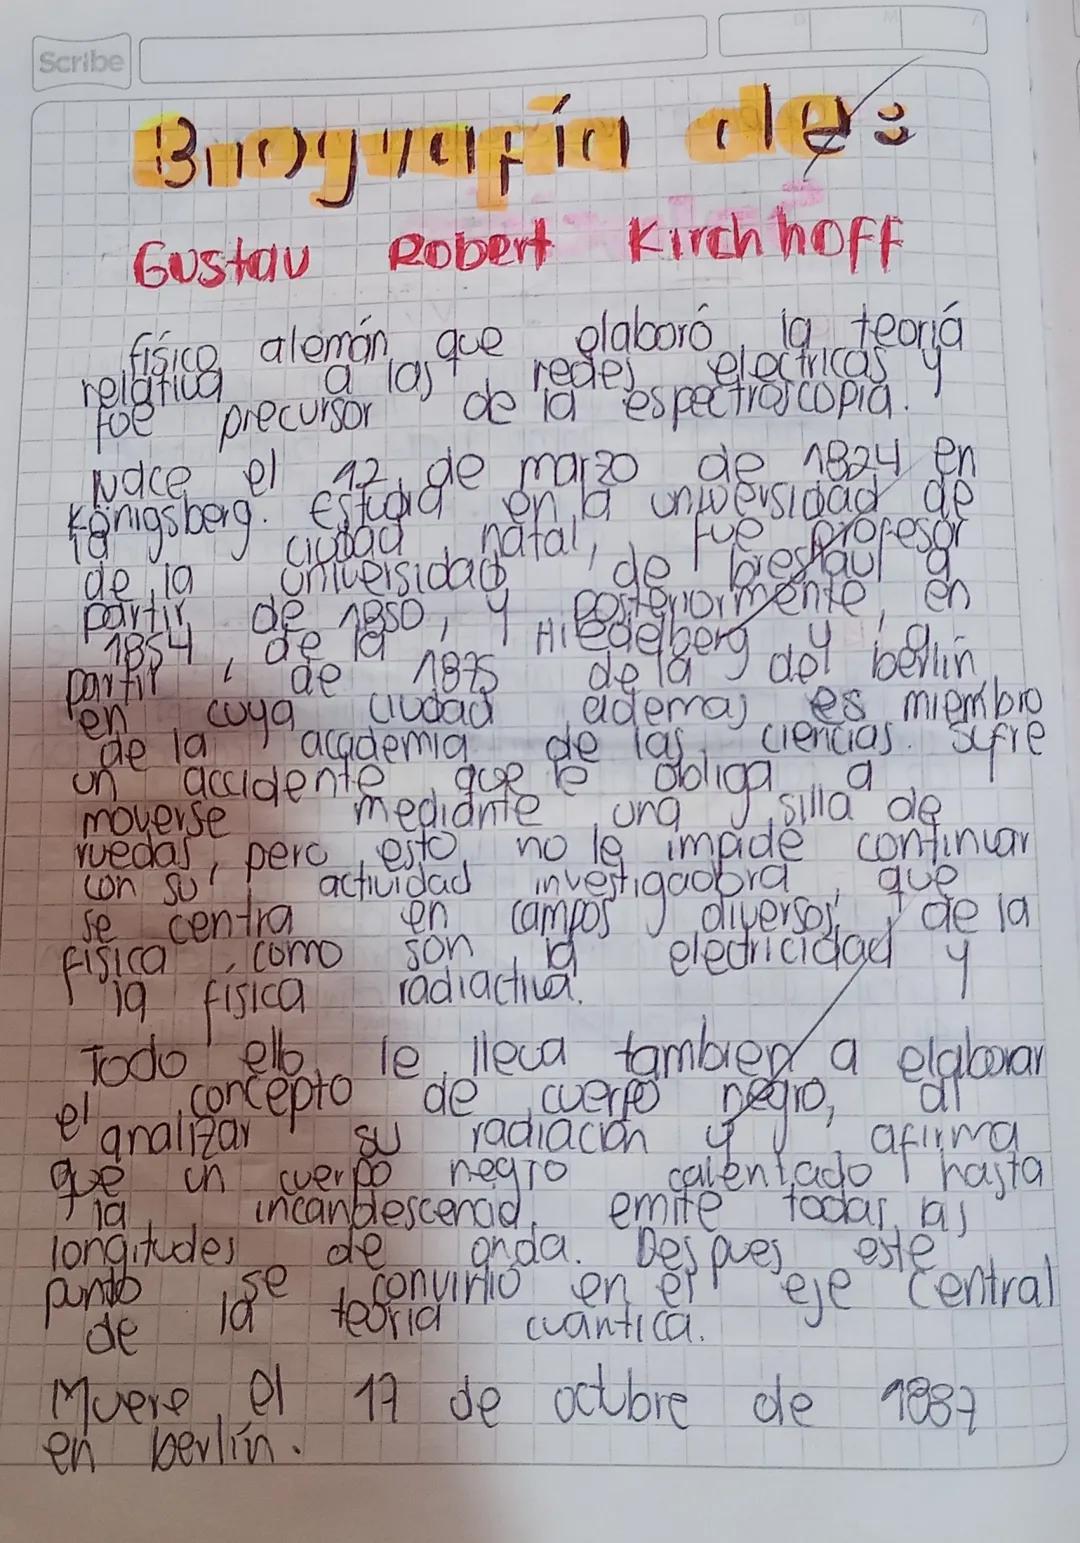 Scribe
Biografía de:
Gustav Robert Kirchhoff
físico alemán que elaboró la teoría
relativa a las redes electricas y
fue precursor de la espectroscopia.
Nace el 12 de marzo de 1824 en
Königsberg. Estudia en la universidad de
la ciudad natal, fue profesor
de la universidad de breslaul a
partir de 1850, y posteriormente, en
1854, de la Hiedelberg y a
partir de 1875 de la del berlin
en cuya ciudad ademas es miembro
de la academia de las ciencias. Sufre
un accidente que le obliga a
moverse mediante una silla de
ruedas, pero esto no le impide continuar
con su actividad investigadora, que
se centra en campos diversos de la
física, como son la electricidad y
la física radiactiva.
Todo ello le lleva tambien a elaborar
el concepto de cuerpo negro, al
analizar su radiación y afirma
que un cuerpo negro calentado hasta
la incandescencia, emite todas las
longitudes de onda. Despues este
punto se convirtio en el eje central
de la teoria cuántica.
Muere el 17 de octubre de 1887
en berlín.